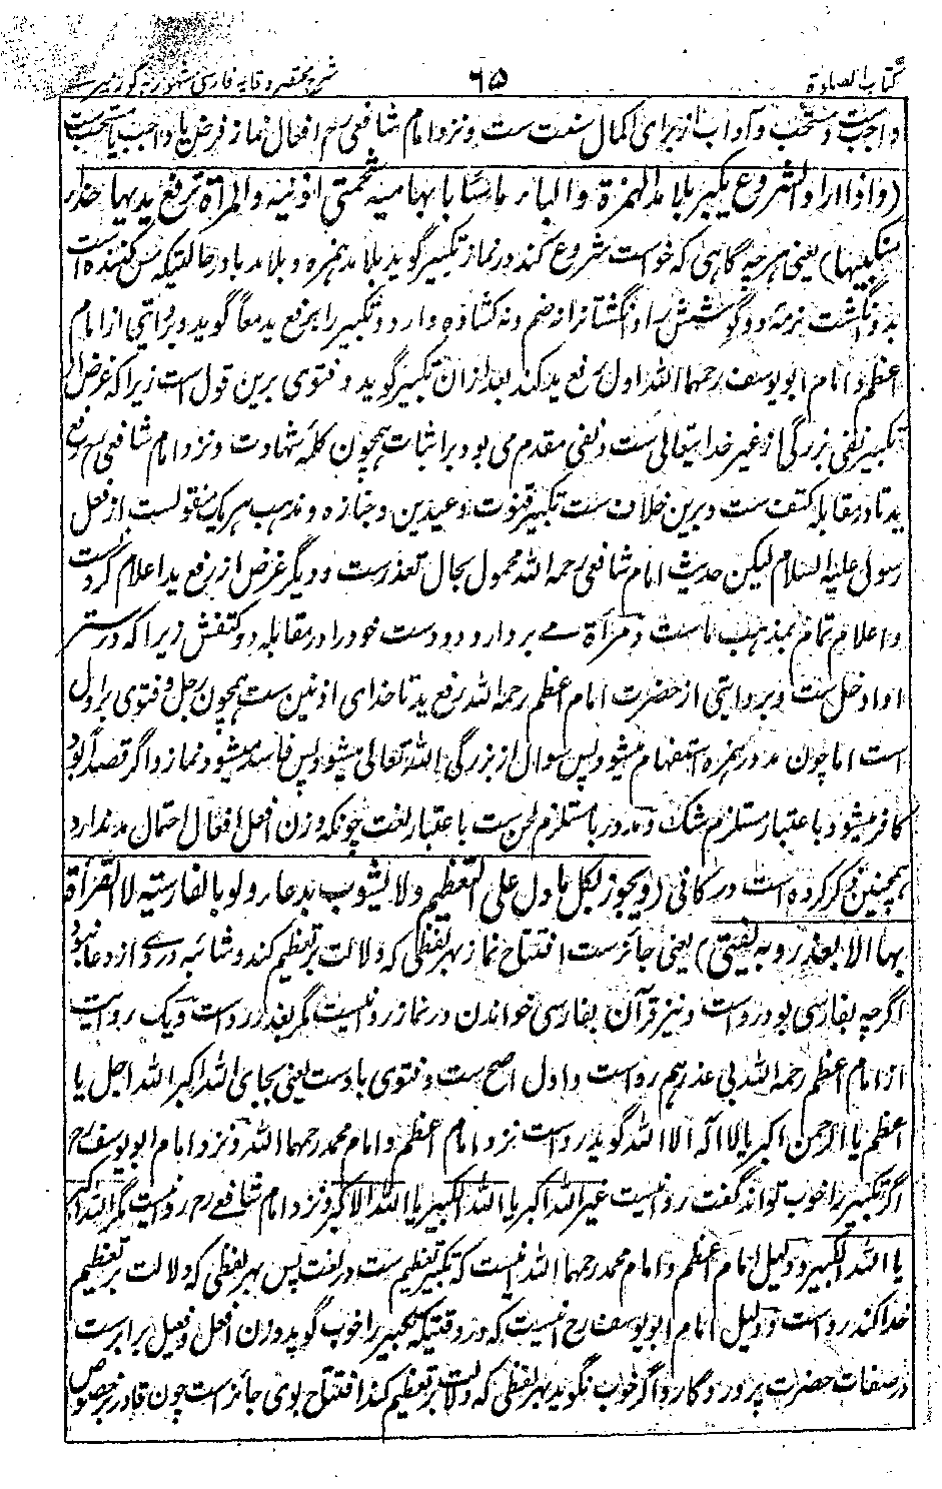 کتاب الصلوة ۶۵ شرح مختصر وقایه فارسی مشهور به کور میری
واجبست و مستحب و آداب از برای اکمال سنت ست و نزد امام شافعی رح افعال نماز فرض یا واجب یا مستحب ست
(واذا اراد الشروع یکبر بلا مد الهمزة والباء ماسا بابهامیه شحمتی اذنیه والمرأة ترفع یدیها حذاء
منکبیها) یعنی هرچه گاهی که خواست شروع کند در نماز تکبیر گوید بلا مد همزه و بلا مد با در حالتیکه مس کننده است
بدو انگشت نرمه دو گوشش را و انگشتانرا نه ضم و نه کشاده دارد و تکبیر را برفع ید معا گوید و بروایتی از امام
اعظم و امام ابو یوسف رحمهما الله اول رفع ید کند بعد ازان تکبیر گوید و فتوی برین قول است زیرا که غرض از
تکبیر نفی بزرگی از غیر خدایتعالی ست و نفی مقدم می بود بر اثبات همچون کلمه شهادت و نزد امام شافعی رح رفع
ید تا در مقابله کتف ست و برین خلاف ست تکبیر قنوت و عیدین و جنازه و مذهب هر یک منقولست از فعل
رسول علیه السلام لیکن حدیث امام شافعی رحمه الله محمول بحال تعذرست و دیگر غرض از رفع ید اعلام کردنست
و اعلام تمام بمذهب ماست و مرأة می بردارد دو دست خود را در مقابله دو کتفش زیرا که در ستر
او ادخل ست و بروایتی از حضرت امام اعظم رحمه الله رفع ید تا حذای اذنین ست همچون رجل و فتوی بر اول
است اما چون مد در همزه استفهام میشود پس سوال از بزرگی الله تعالی میشود پس فاسد میشود نماز و اگر قصدا بود
کافر میشود باعتبار مستلزم شک و مد در با مستلزم لحن ست باعتبار لغت چونکه وزن افعل افعال احتمال مد ندارد
همچنین ذکر کرده است در کافی (ویجوز بکل ما دل علی التعظیم ولا یشوب بدعاء ولو بالفارسیة لا القرأة
بها الا بعذر وبه یفتی) یعنی جائز ست افتتاح نماز بهر لفظی که دلالت بر تعظیم کند و شائبه در وی از دعا نبود
اگرچه بفارسی بود رواست و نیز قرآن بفارسی خواندن در نماز روا نیست مگر بعذر رواست و یک روایت
از امام اعظم رحمه الله بی عذر هم رواست و اول اصح ست و فتوی باوست یعنی بجای الله اکبر الله اجل یا
اعظم یا الرحمن اکبر یا لا اله الا الله گوید رواست نزد امام اعظم و امام محمد رحمهما الله و نزد امام ابو یوسف رح
اگر تکبیر را خوب تواند گفت روا نیست غیر الله اکبر یا الله الکبیر یا الله الاکبر و نزد امام شافعی رح روا نیست مگر الله اکبر
یا الله الکبیر و دلیل امام اعظم و امام محمد رحمهما الله اینست که تکبیر تعظیم ست در لغت پس بهر لفظی که دلالت بر تعظیم
خدا کند رواست و دلیل امام ابو یوسف رح اینست که در وقتیکه تکبیر را خوب گوید وزن افعل و فعیل برابر ست
در صفات حضرت پروردگار و اگر خوب نگوید بهر لفظی که دلالت بر تعظیم کند افتتاح بوی جائز است چون قادر بر خصوص